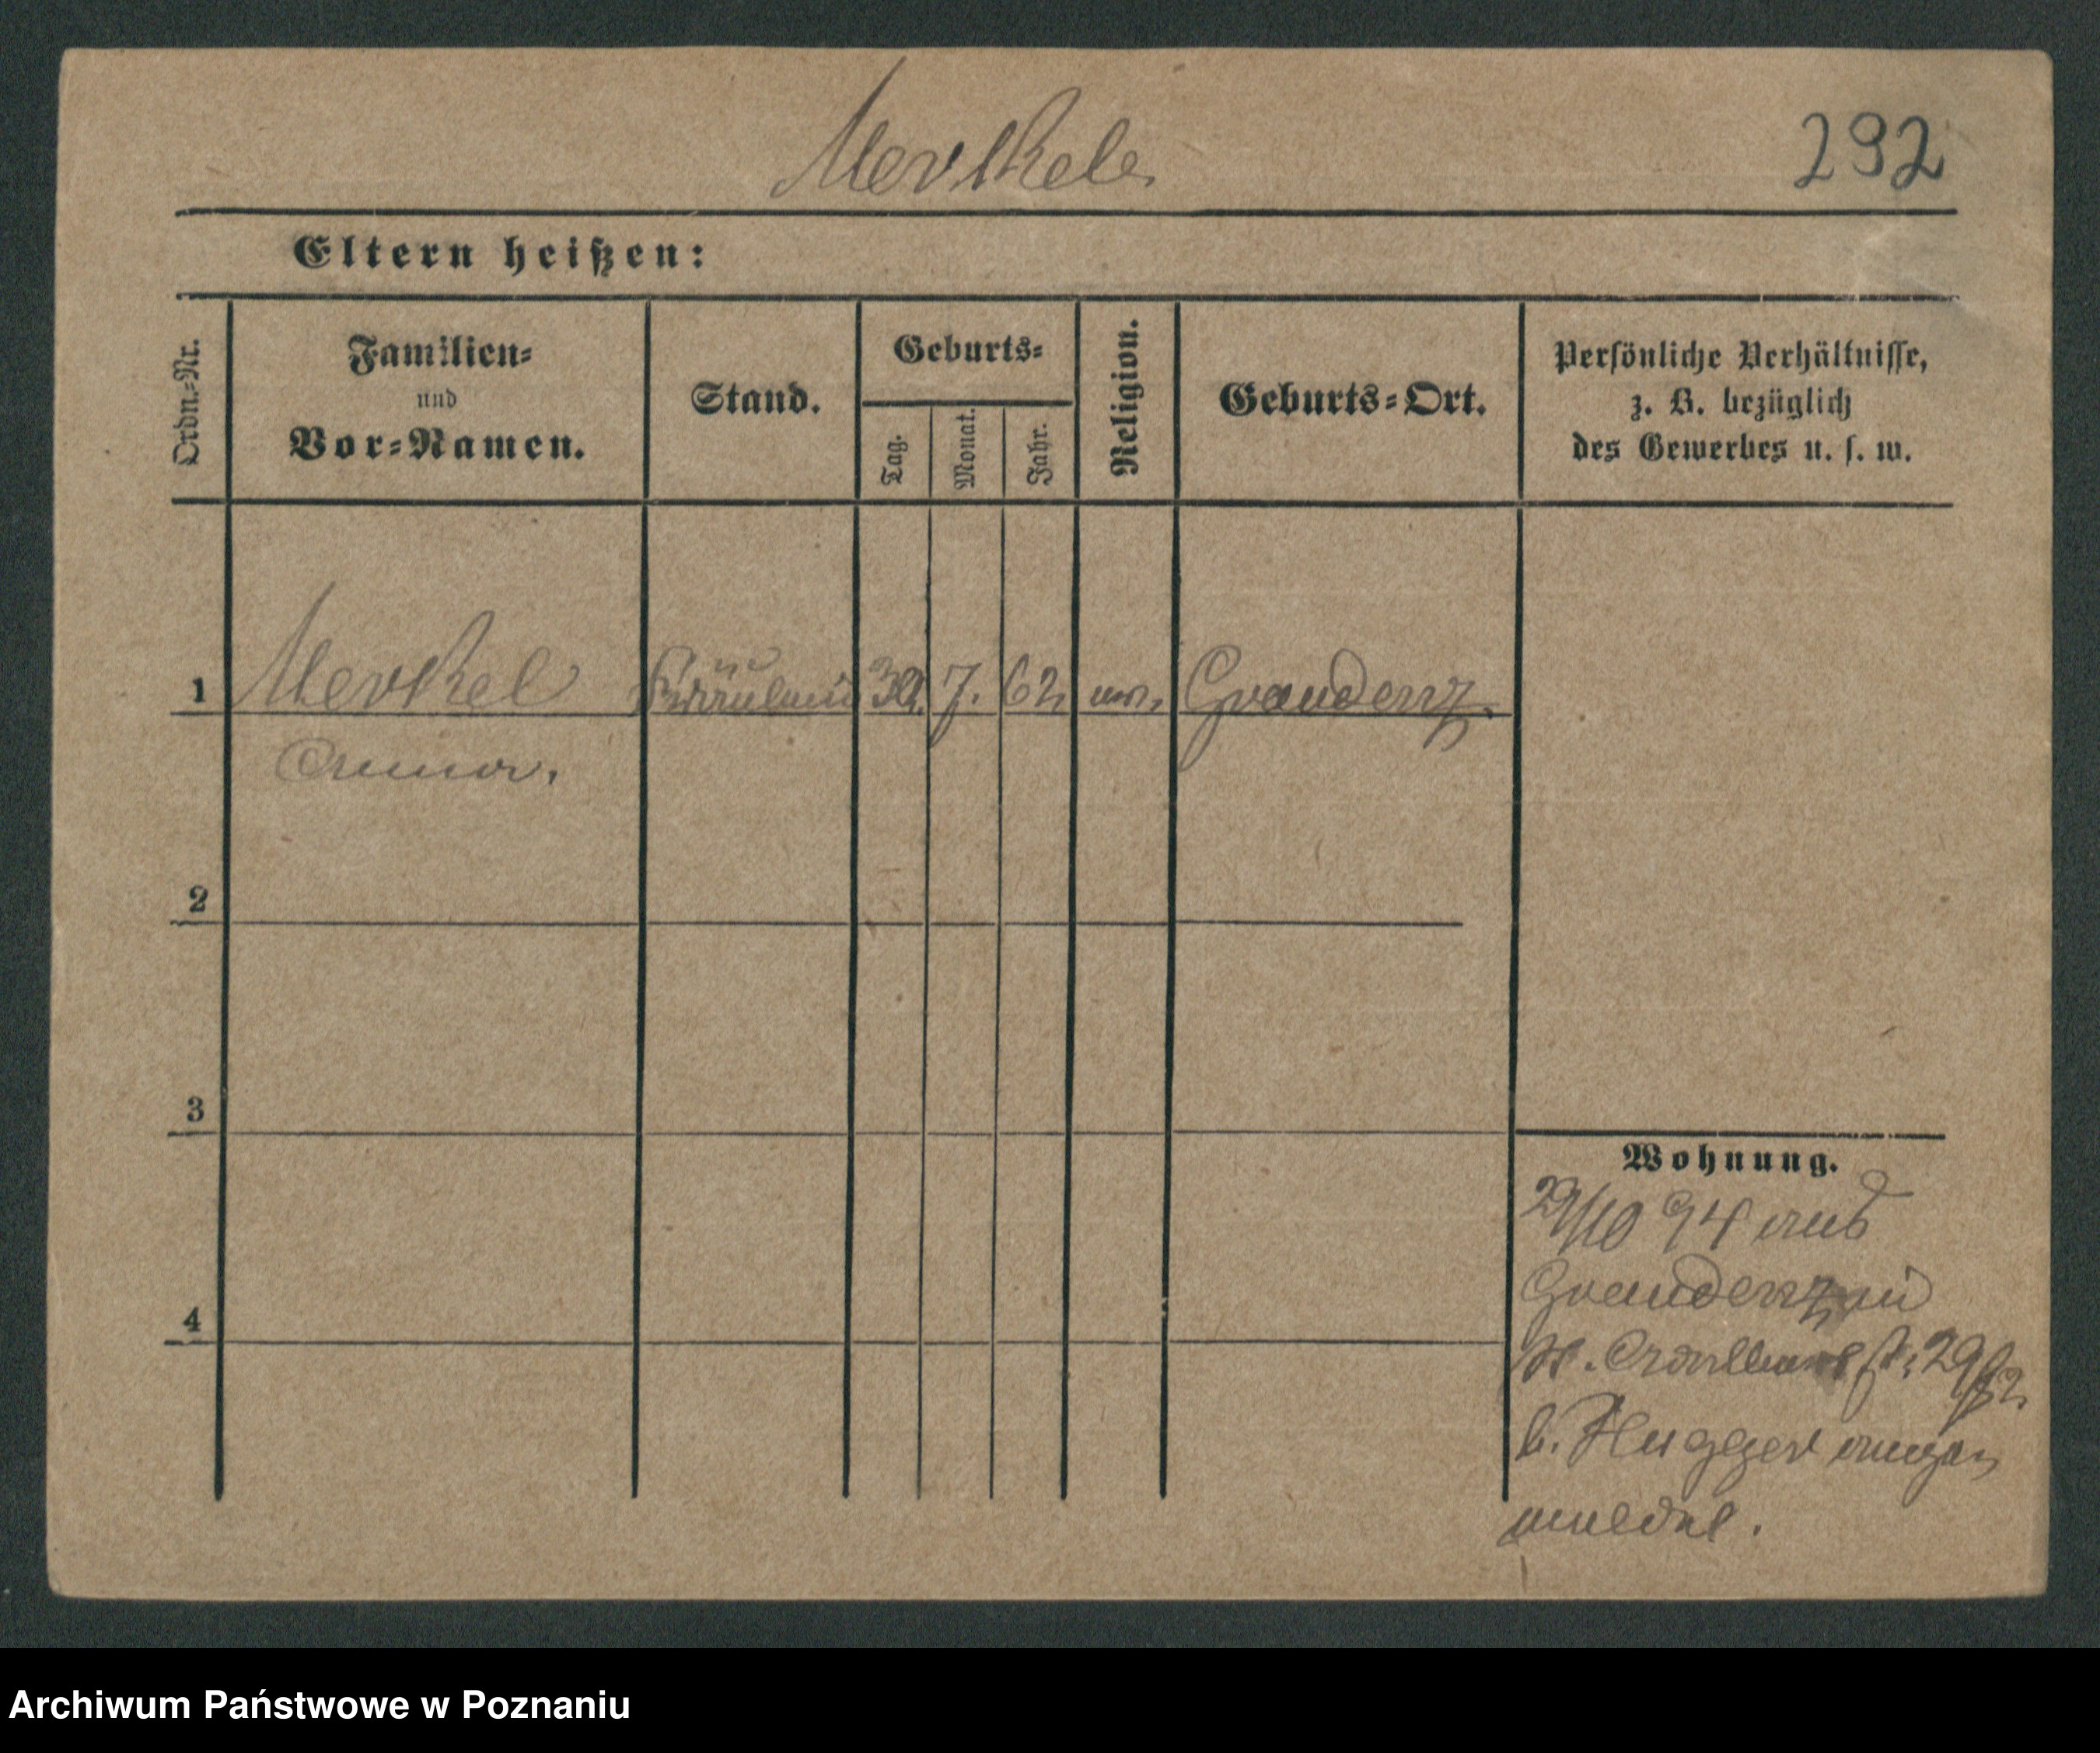 Merkel.
292
Eltern heißen:
Ordn.=Nr.
Familien=
und
Vor=Namen.
Stand.
Geburts=
Tag.
Monat.
Jahr.
Religion.
Geburts=Ort.
Persönliche Verhältnisse,
z. B. bezüglich
des Gewerbes u. s. w.
1
Merkel
Fräulein
30.
7.
62
Graudenz.
Anna.
2
3
4
Wohnung.
29/10 94 aus
Graudenz
29/
b. Hugger ange
meldet.
Archiwum Państwowe w Poznaniu